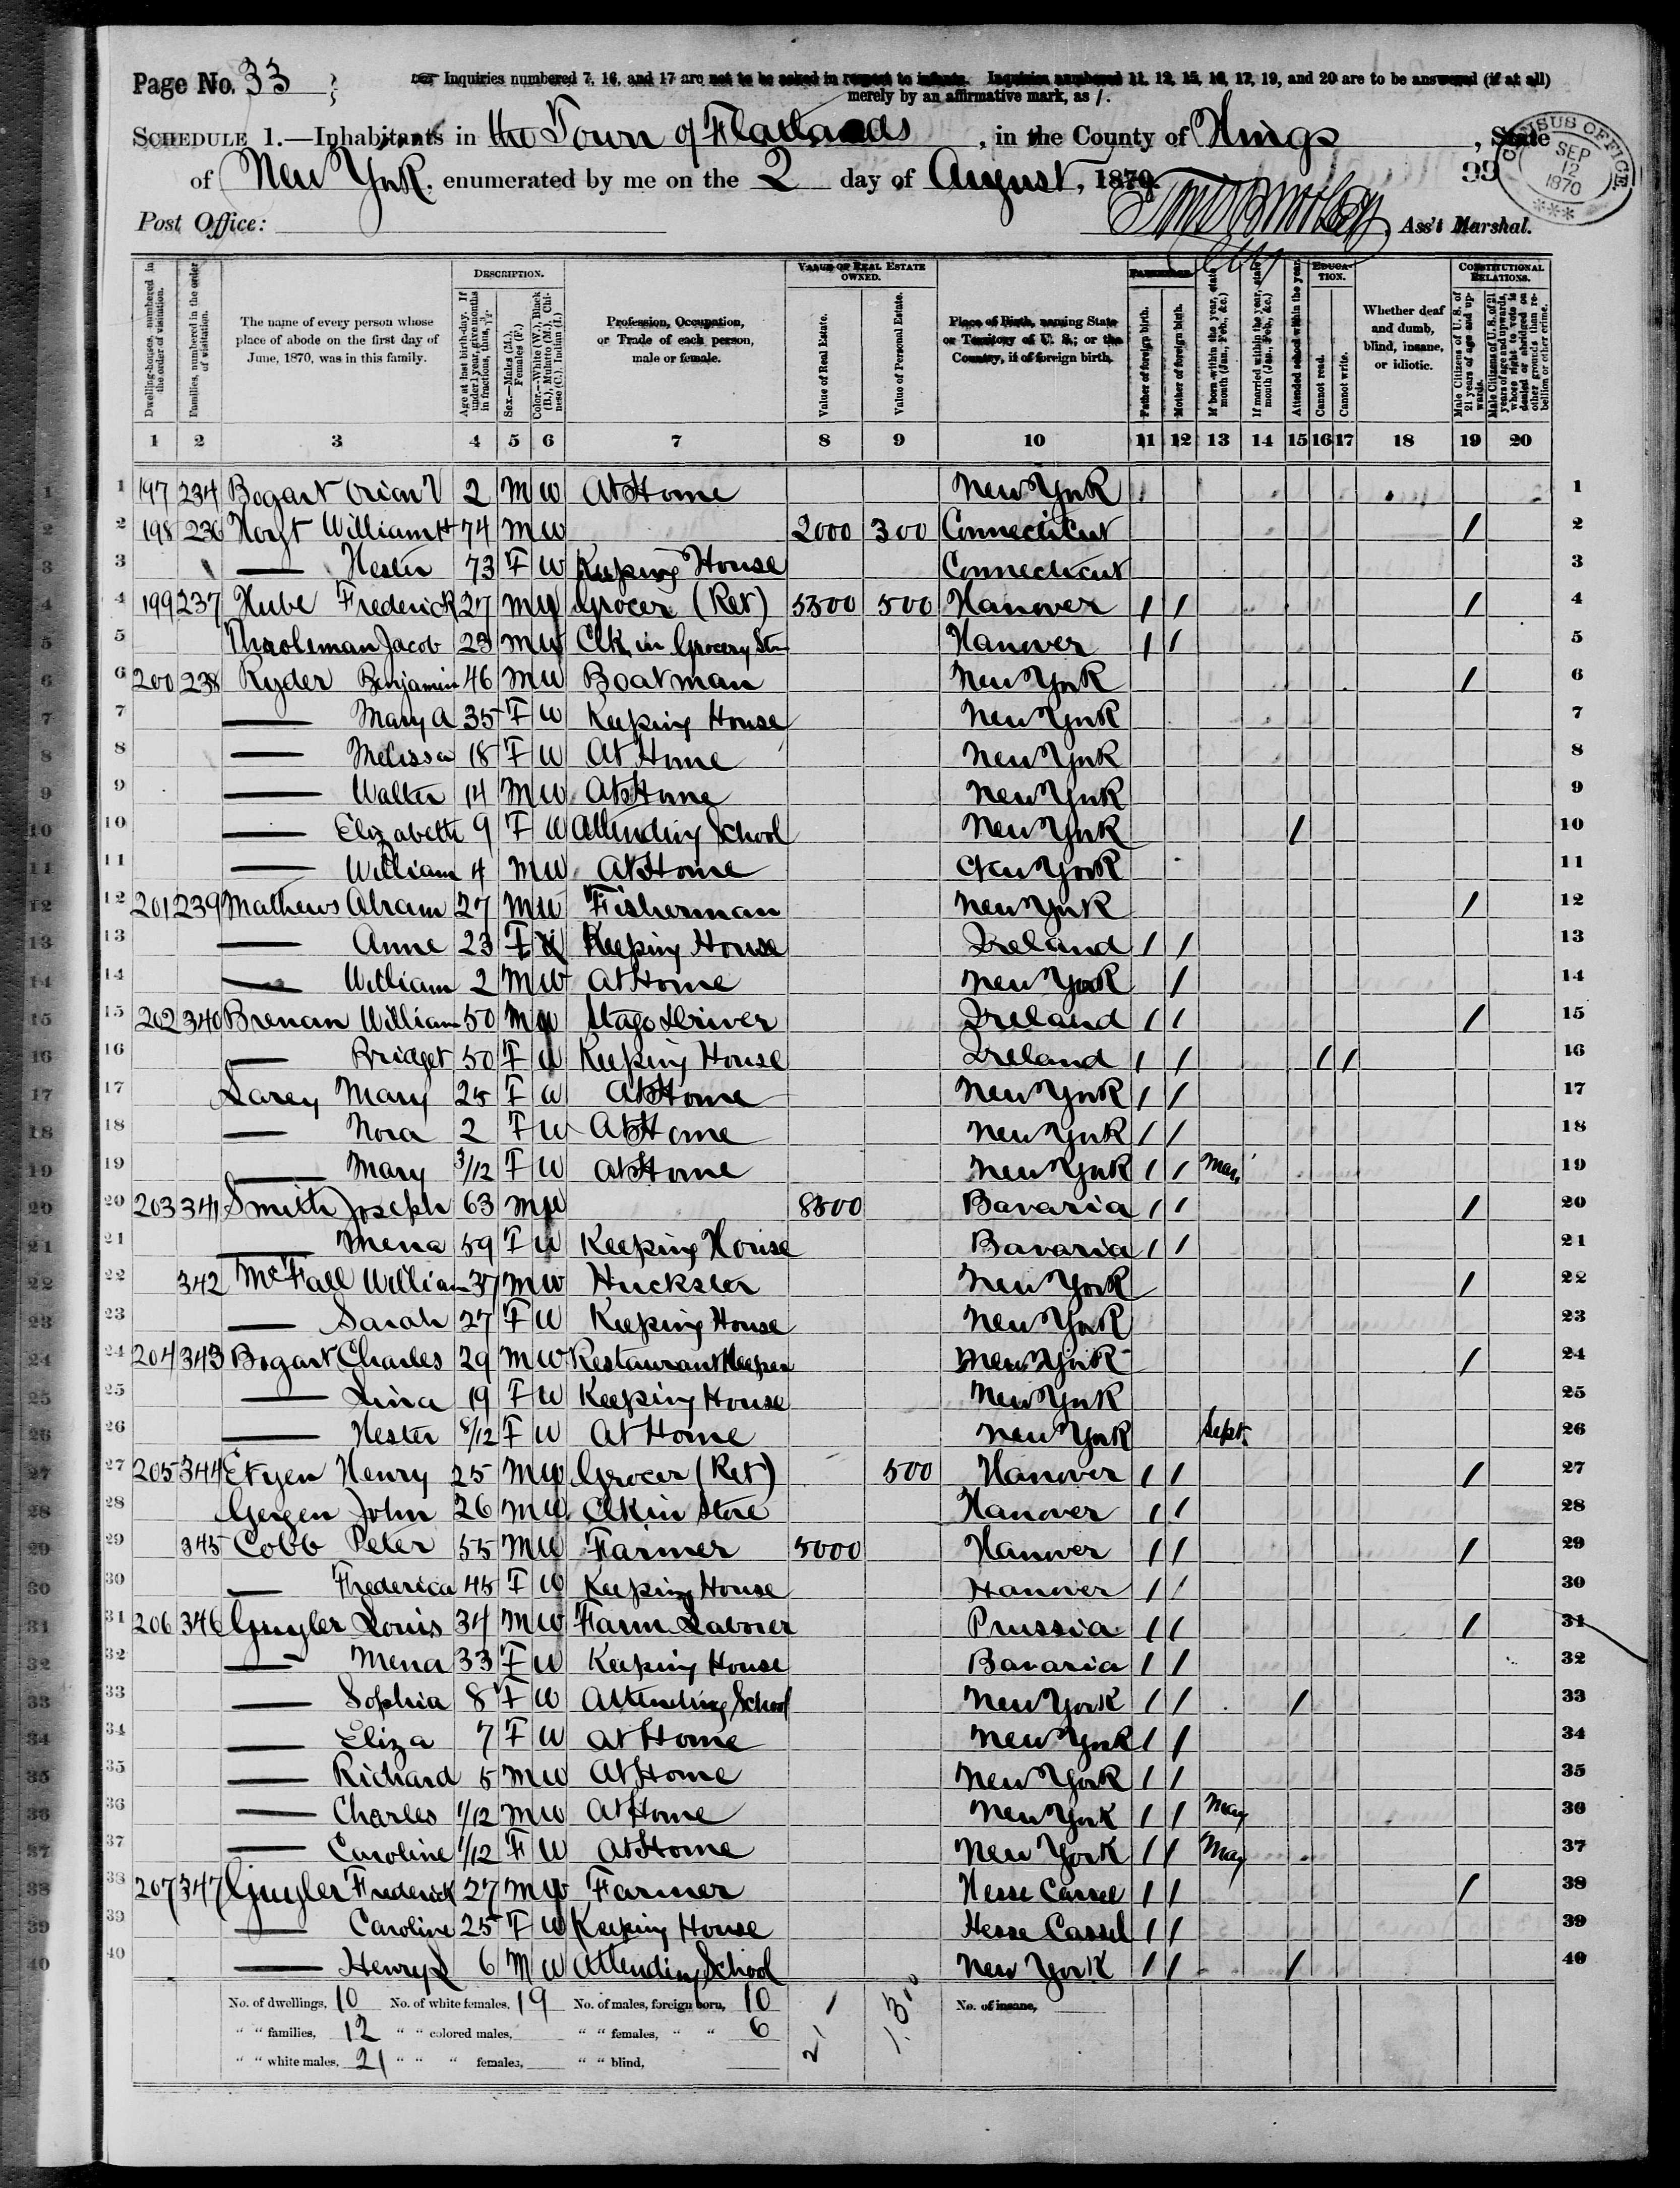 Page No. 33
Inquiries numbered 7, 16, and 17 are not to be asked in respect to infants. Inquiries numbered 11, 12, 15, 16, 17, 19, and 20 are to be answered (if at all)
merely by an affirmative mark, as /.
SCHEDULE 1.—Inhabitants in the Town of Flatlands, in the County of Kings, State
of New York, enumerated by me on the 2 day of August, 1870. 99
CENSUS OFFICE SEP 12 1870
Post Office: Ass't Marshal.
Dwelling-houses, numbered in the order of visitation.
Families, numbered in the order of visitation.
The name of every person whose place of abode on the first day of June, 1870, was in this family.
DESCRIPTION.
Age at last birth-day. If under 1 year, give months in fractions, thus, 3/12.
Sex.—Males (M.), Females (F.)
Color.—White (W.), Black (B.), Mulatto (M.), Chinese (C.), Indian (I.)
Profession, Occupation, or Trade of each person, male or female.
VALUE OF REAL ESTATE OWNED.
Value of Real Estate.
Value of Personal Estate.
Place of Birth, naming State or Territory of U. S.; or the Country, if of foreign birth.
PARENTAGE.
Father of foreign birth.
Mother of foreign birth.
If born within the year, state month (Jan., Feb., &c.)
If married within the year, state month (Jan., Feb., &c.)
Attended school within the year.
EDUCATION.
Cannot read.
Cannot write.
Whether deaf and dumb, blind, insane, or idiotic.
CONSTITUTIONAL RELATIONS.
Male Citizens of U. S. of 21 years of age and upwards.
Male Citizens of U. S. of 21 years of age and upwards, whose right to vote is denied or abridged on other grounds than rebellion or other crime.
1 2 3 4 5 6 7 8 9 10 11 12 13 14 15 16 17 18 19 20
1 197 234 Bogart 2 M W At Home New York 1
2 198 236 Hoyt William H 74 M W 2000 300 Connecticut / 2
3 — Hester 73 F W Keeping House Connecticut 3
4 199 237 Hube Frederick 27 M W Grocer (Ret) 5500 500 Hanover / / / 4
5 Jacob 23 M W Clk in Grocery Hanover / / 5
6 200 238 Ryder Benjamin 46 M W Boatman New York / 6
7 — Mary A 35 F W Keeping House New York 7
8 — Melissa 18 F W At Home New York 8
9 — Walter 14 M W At Home New York 9
10 — Elizabeth 9 F W Attending School New York / 10
11 — William 4 M W At Home New York 11
12 201 239 Mathews Abram 27 M W Fisherman New York / 12
13 — Anne 23 F W Keeping House Ireland / / 13
14 — William 2 M W At Home New York / 14
15 202 340 Brenan William 50 M W Stage Driver Ireland / / / 15
16 — Bridget 50 F W Keeping House Ireland / / / / 16
17 Larey Mary 25 F W At Home New York / / 17
18 — Nora 2 F W At Home New York / / 18
19 — Mary 3/12 F W At Home New York / / Mar. 19
20 203 341 Smith Joseph 63 M W 8500 Bavaria / / / 20
21 — Mena 59 F W Keeping House Bavaria / / 21
22 342 McFall William 37 M W Huckster New York / 22
23 — Sarah 27 F W Keeping House New York 23
24 204 343 Bogart Charles 29 M W Restaurant Keeper New York / 24
25 — Lina 19 F W Keeping House New York 25
26 — Hester 8/12 F W At Home New York Sept. 26
27 205 344 Etgen Henry 25 M W Grocer (Ret) 500 Hanover / / / 27
28 Gergen John 26 M W Clk in Store Hanover / / 28
29 345 Cobb Peter 55 M W Farmer 5000 Hanover / / / 29
30 — Frederica 45 F W Keeping House Hanover / / 30
31 206 346 Gugler Louis 34 M W Farm Laborer Prussia / / / 31
32 — Mena 33 F W Keeping House Bavaria / / 32
33 — Sophia 8 F W Attending School New York / / / 33
34 — Eliza 7 F W At Home New York / / 34
35 — Richard 5 M W At Home New York / / 35
36 — Charles 1/12 M W At Home New York / / May 36
37 — Caroline 1/12 F W At Home New York / / May 37
38 207 347 Gugler Frederick 27 M W Farmer Hesse Cassel / / / 38
39 — Caroline 25 F W Keeping House Hesse Cassel / / 39
40 — Henry L 6 M W Attending School New York / / / 40
No. of dwellings, 10 No. of white females, 19 No. of males, foreign born, 10 No. of insane,
" " families, 12 " " colored males, " " females, " " 6
" " white males, 21 " " " females, " " blind,